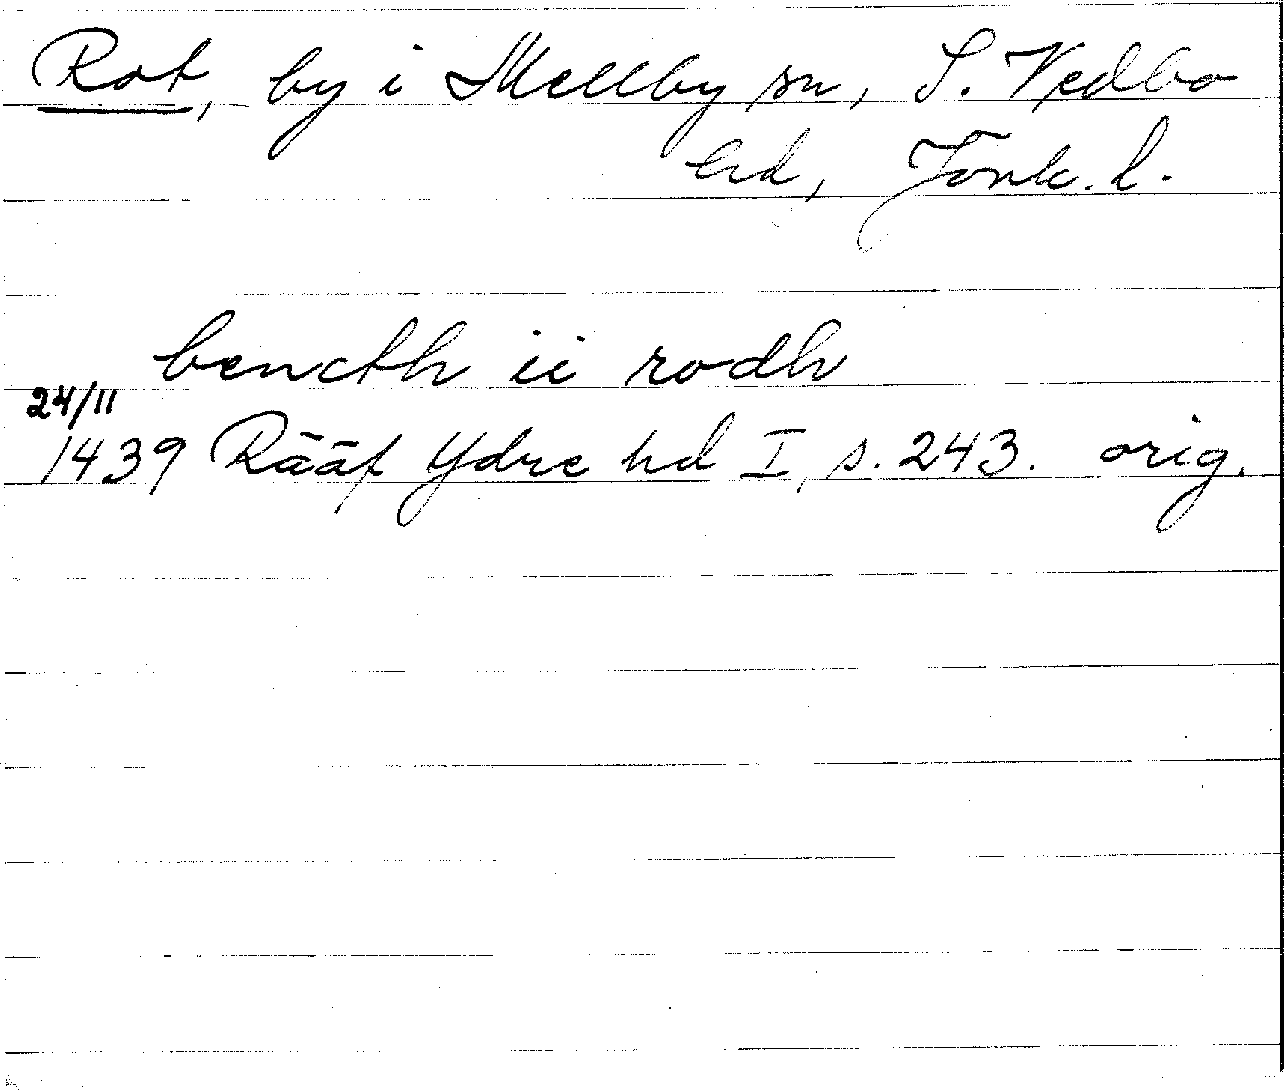 Rot, by i Mellby sn, S. Vedbo
hd, Jönk. l.
bencth ii rodh
24/11
1439 Rääf Ydre hd I, s. 243. orig.